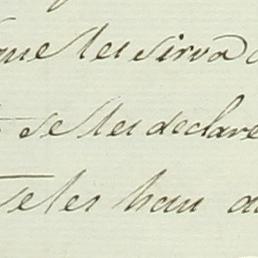 que les sirva
se les declare
se les han